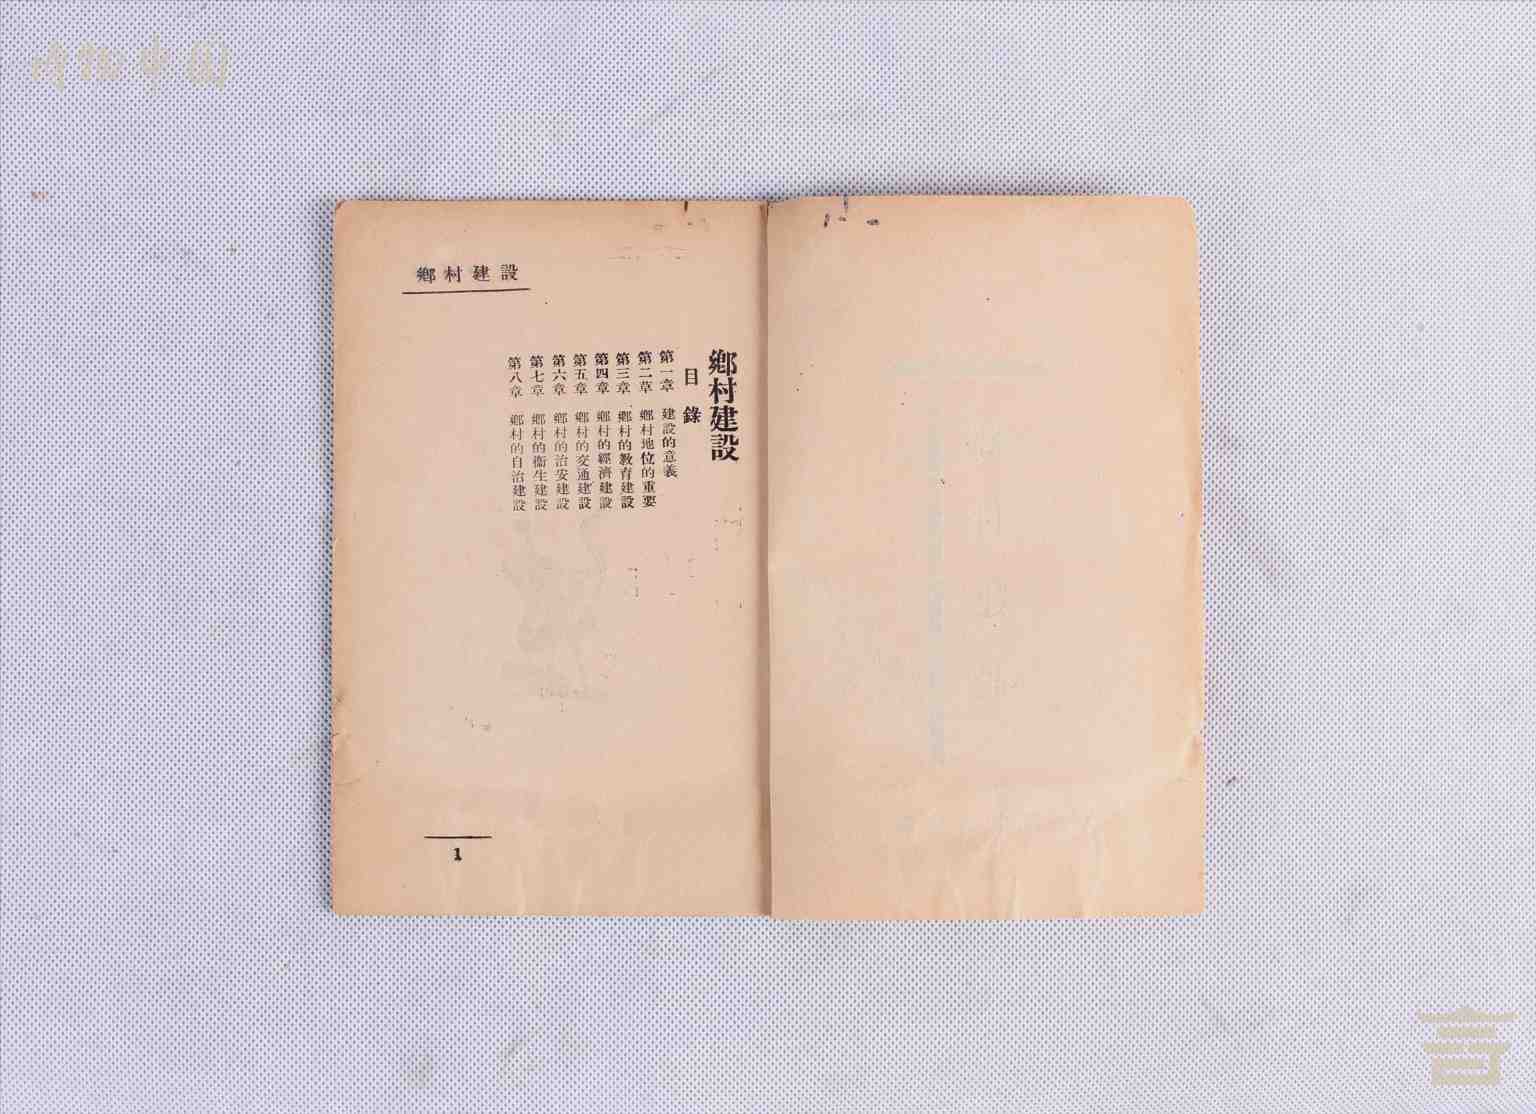 鄉村建設
鄉村建設
目錄
第一章 建設的意義
第二章 鄉村地位的重要
第三章 鄉村的教育建設
第四章 鄉村的經濟建設
第五章 鄉村的交通建設
第六章 鄉村的治安建設
第七章 鄉村的衞生建設
第八章 鄉村的自治建設
1